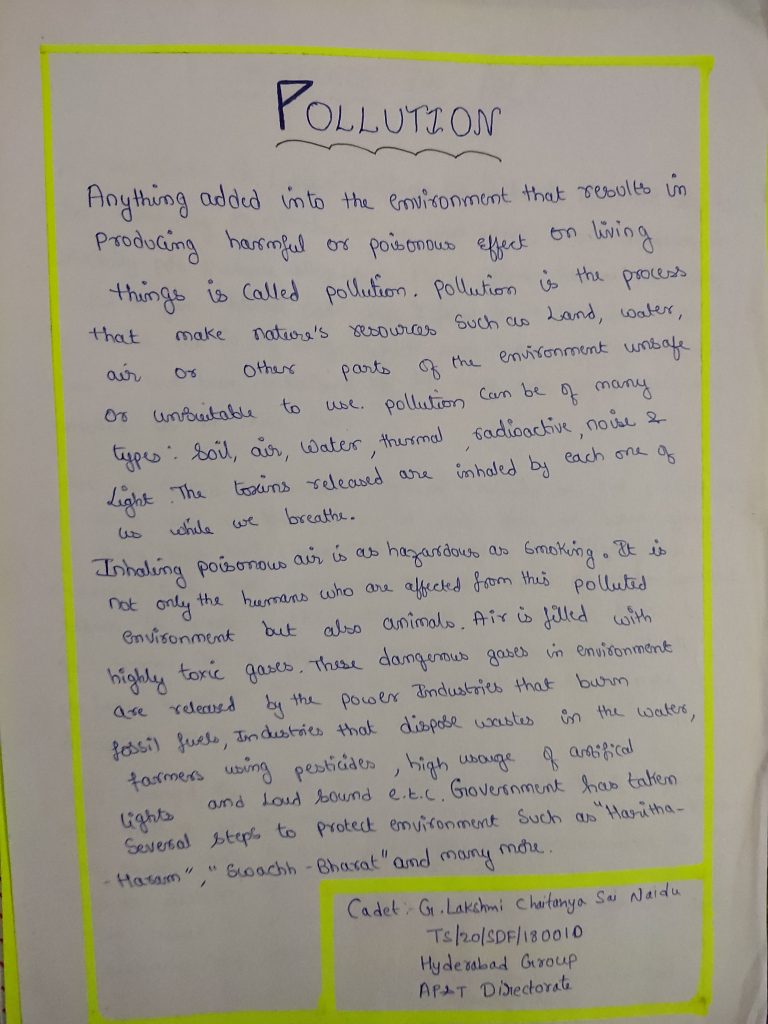 POLLUTION
Anything added into the environment that results in
producing harmful or poisonous effect on living
things is called pollution. Pollution is the process
that make nature's resources such as Land, water,
air or other parts of the environment unsafe
or unsuitable to use. pollution can be of many
types: Soil, air, water, thermal, radioactive, noise &
Light. The toxins released are inhaled by each one of
us while we breathe.
Inhaling poisonous air is as hazardous as smoking. It is
not only the humans who are affected from this polluted
environment but also animals. Air is filled with
highly toxic gases. These dangerous gases in environment
are released by the power Industries that burn
fossil fuels, Industries that dispose wastes in the water,
farmers using pesticides, high usage of artifical
lights and Loud sound e.t.c. Government has taken
Several steps to protect environment such as "Haritha-
-Haram", "Swachh-Bharat" and many more.
Cadet:- G. Lakshmi Chaitanya Sai Naidu
TS/20/SDF/180010
Hyderabad Group
AP&T Directorate